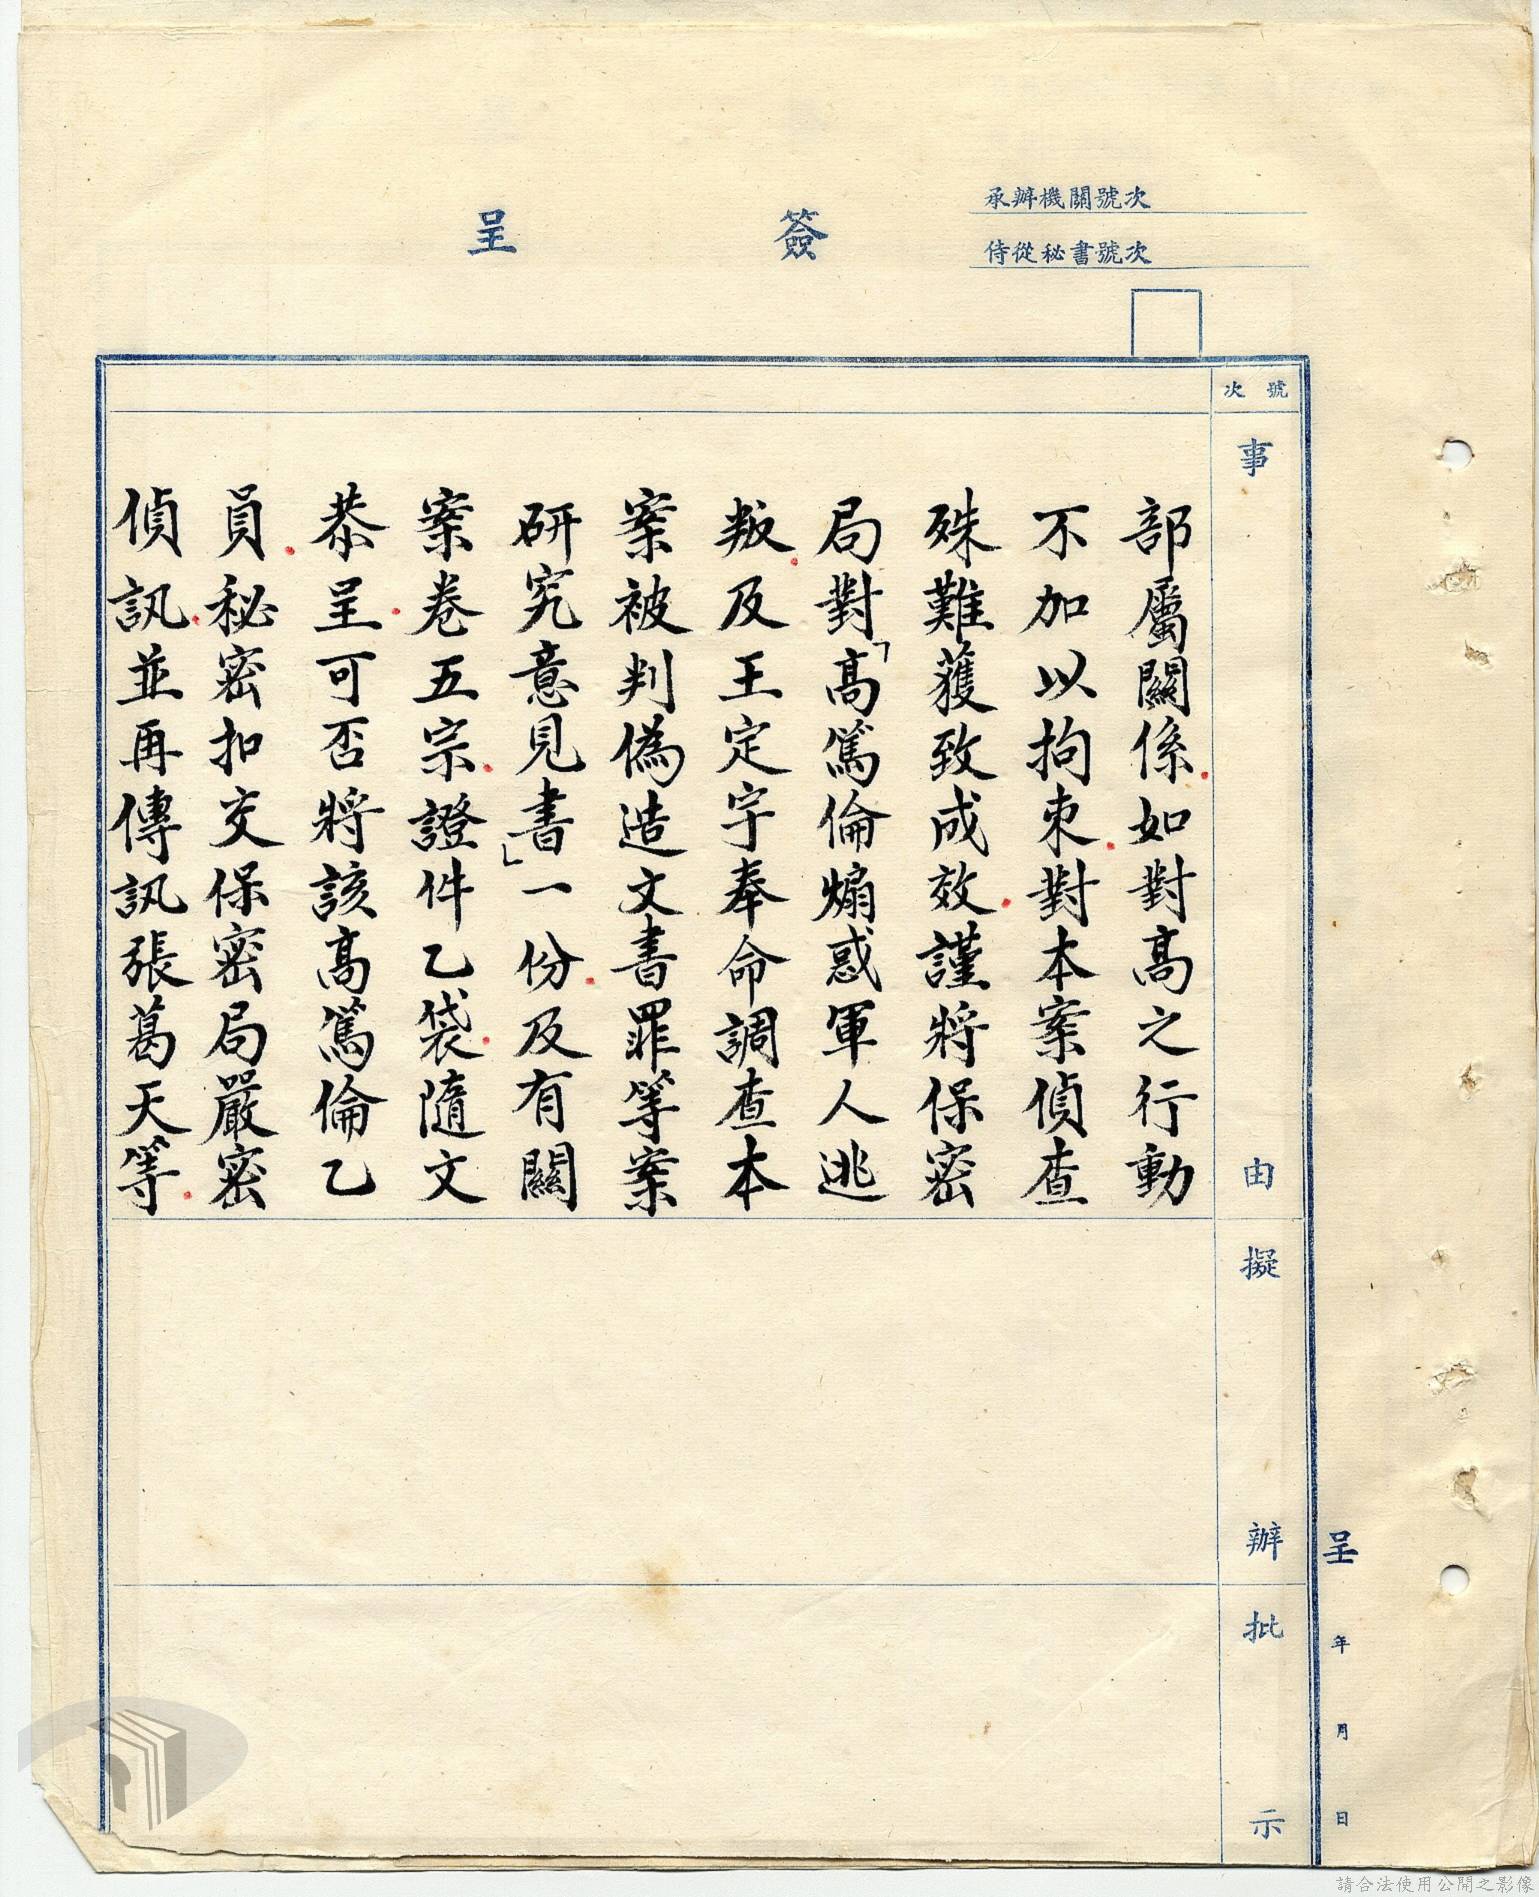 承辦機關號次
侍從秘書號次
簽呈
號次
事由
擬辦
批示
呈 年 月 日
部屬關係如對高之行動
不加以拘束對本案偵查
殊難獲致成效謹將保密
局對「高篤倫煽惑軍人逃
叛及王定宇奉命調查本
案被判偽造文書罪等案
研究意見書」一份及有關
案卷五宗證件乙袋隨文
恭呈可否將該高篤倫乙
員秘密扣交保密局嚴密
偵訊並再傳訊張葛天等
請合法使用公開之影像